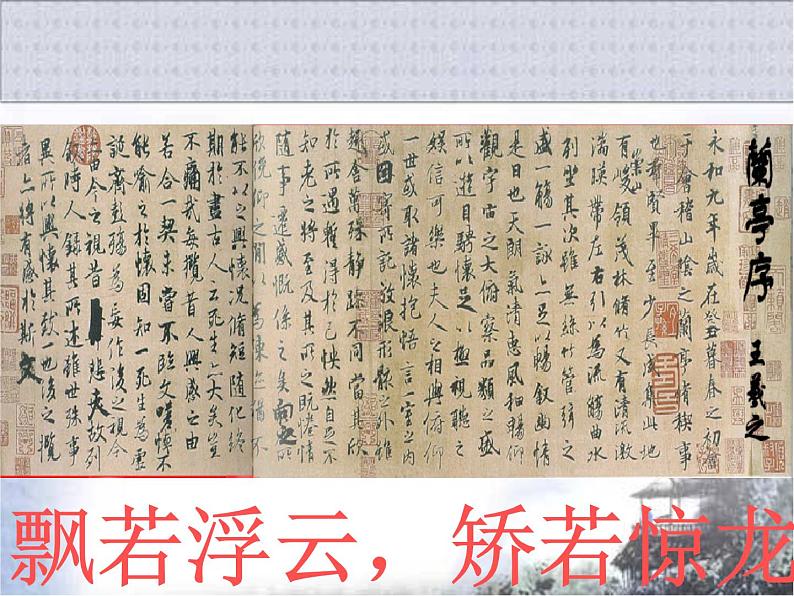 蘭亭序 王羲之
永和九年歲在癸丑暮春之初會
于會稽山陰之蘭亭脩禊事
也羣賢畢至少長咸集此地
有崇山峻領茂林脩竹又有清流激
湍暎帶左右引以為流觴曲水
列坐其次雖無絲竹管弦之
盛一觴一詠亦足以暢敘幽情
是日也天朗氣清惠風和暢仰
觀宇宙之大俯察品類之盛
所以遊目騁懷足以極視聽之
娛信可樂也夫人之相與俯仰
一世或取諸懷抱悟言一室之內
或因寄所託放浪形骸之外雖
趣舍萬殊靜躁不同當其欣
於所遇蹔得於己怏然自足不
知老之將至及其所之既惓情
隨事遷感慨係之矣向之所
欣俛仰之間以為陳迹猶不
能不以之興懷況脩短隨化終
期於盡古人云死生亦大矣豈
不痛哉每攬昔人興感之由
若合一契未嘗不臨文嗟悼不
能喻之於懷固知一死生為虛
誕齊彭殤為妄作後之視今
亦由今之視昔悲夫故列
敘時人錄其所述雖世殊事
異所以興懷其致一也後之攬
者亦將有感於斯文
飘若浮云，矫若惊龙